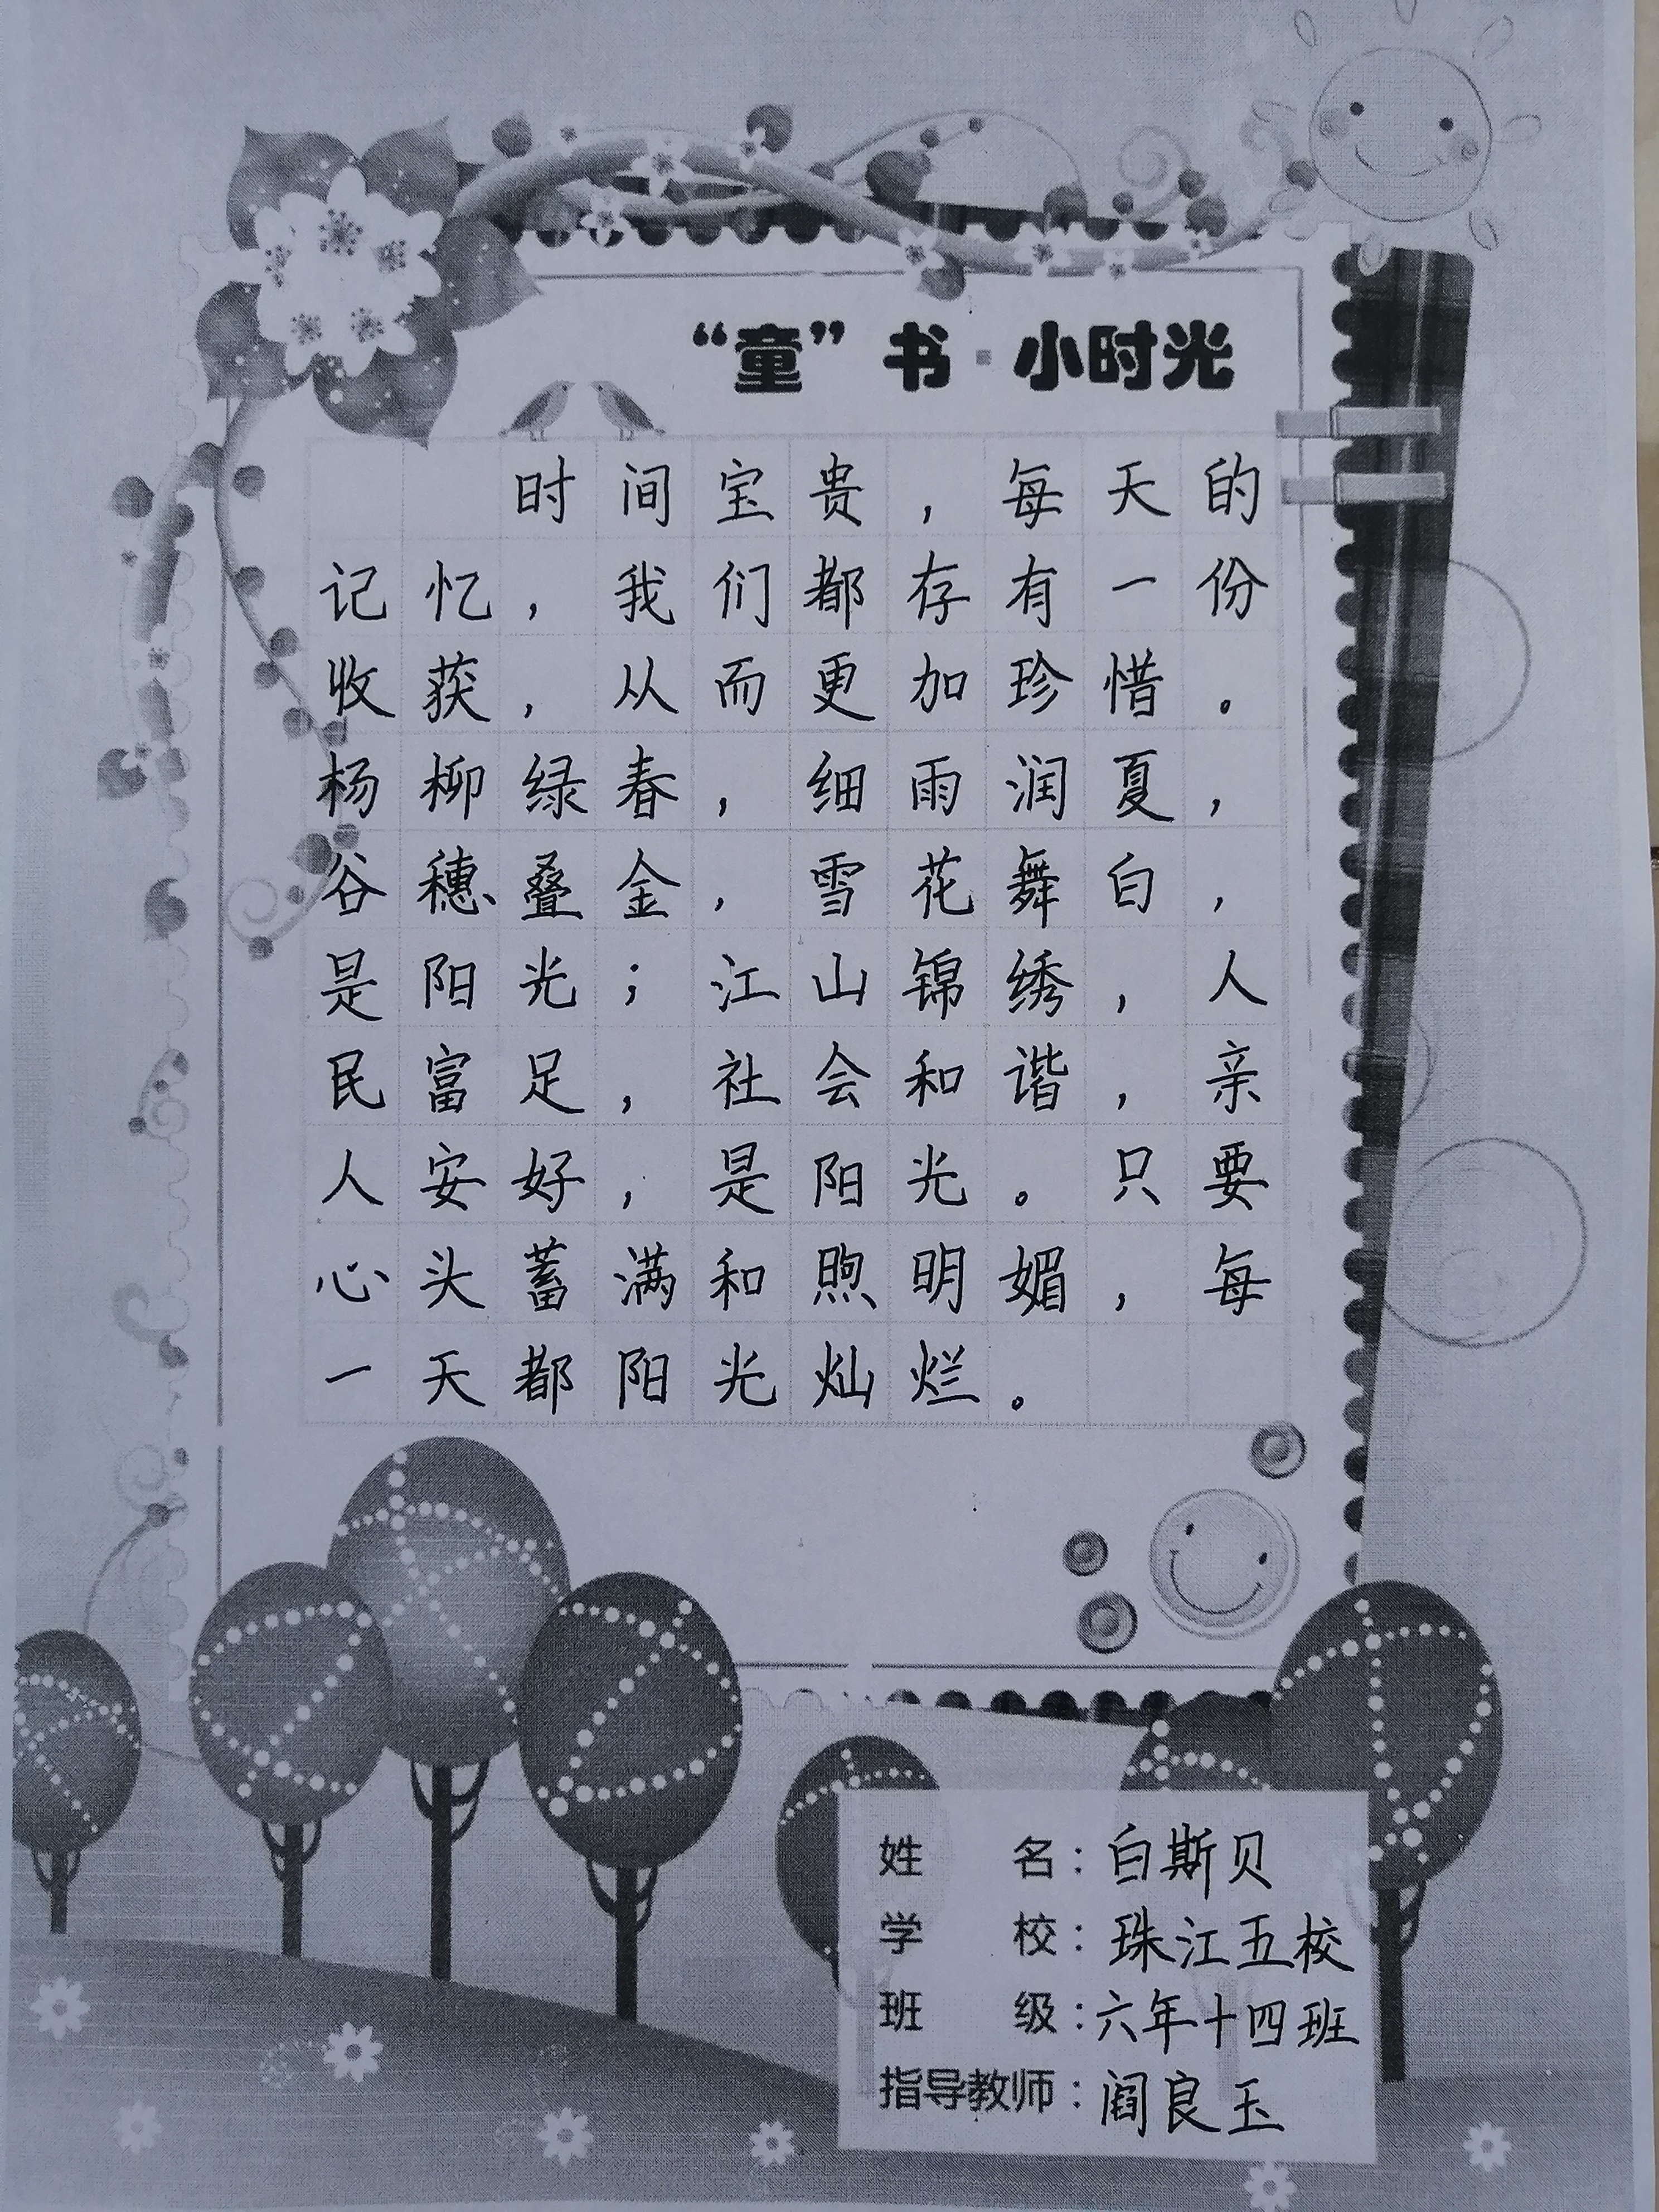 “童”书·小时光
时间宝贵，每天的
记忆，我们都存有一份
收获，从而更加珍惜。
杨柳绿春，细雨润夏，
谷穗叠金，雪花舞白，
是阳光；江山锦绣，人
民富足，社会和谐，亲
人安好，是阳光。只要
心头蓄满和煦明媚，每
一天都阳光灿烂。
姓名：白斯贝
学校：珠江五校
班级：六年十四班
指导教师：阎良玉